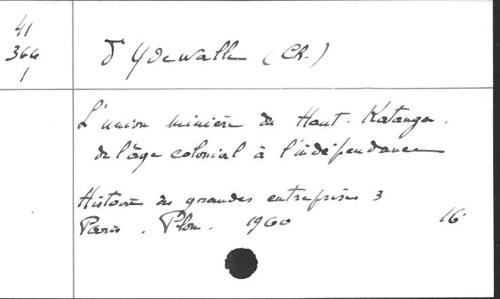 41
366
1
d'Ydewalle (Ch.)
L'union minière du Haut-Katanga.
de l'âge colonial à l'indépendance
Histoire des grandes entreprises 3
Paris. Plon. 1960 16°